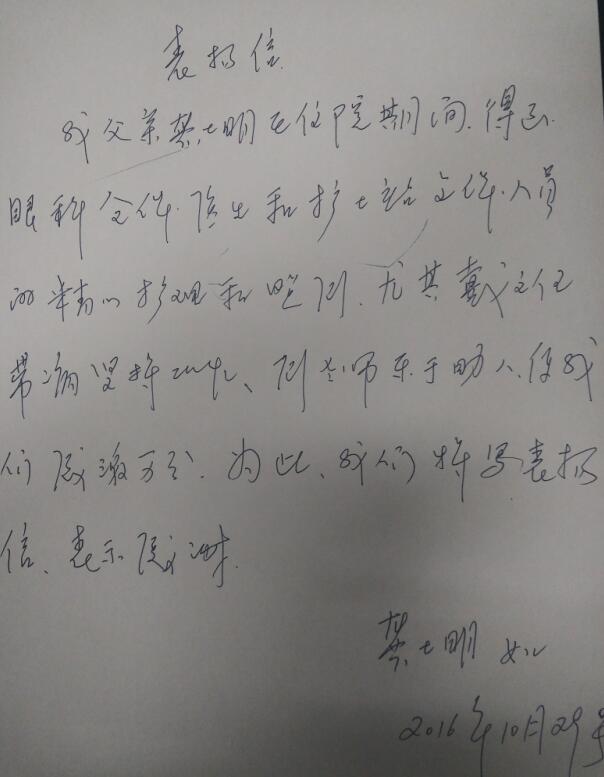 表扬信
我父亲蔡士明在住院期间.得到
眼科全体.医生和护士站全体.人员
的精心护理和照顾.尤其戴主任
带病坚持工作、周老师乐于助人.使我
们感激万分.为此、我们特写表扬
信、表示感谢.
蔡士明
2016年10月29号